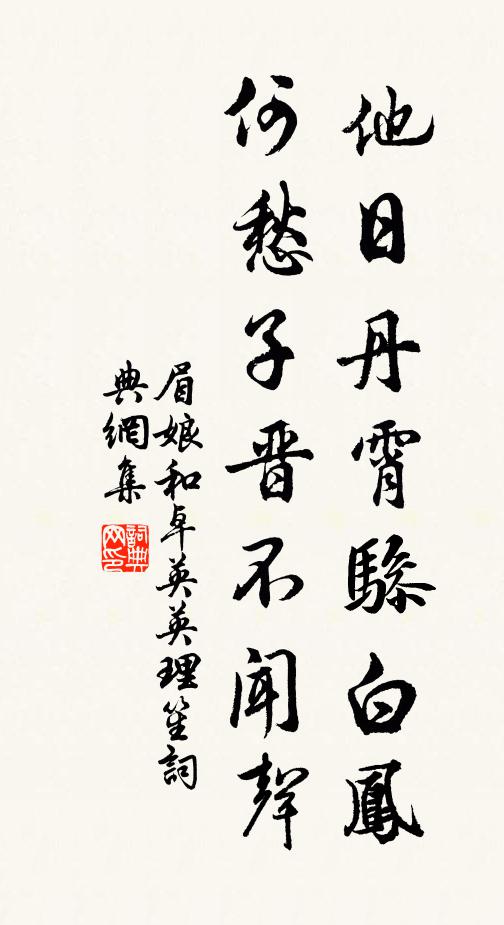 他日丹霄驂白鳳
何愁子晋不聞聲
眉娘和卓英英理笙詞
典網集
詞典网印